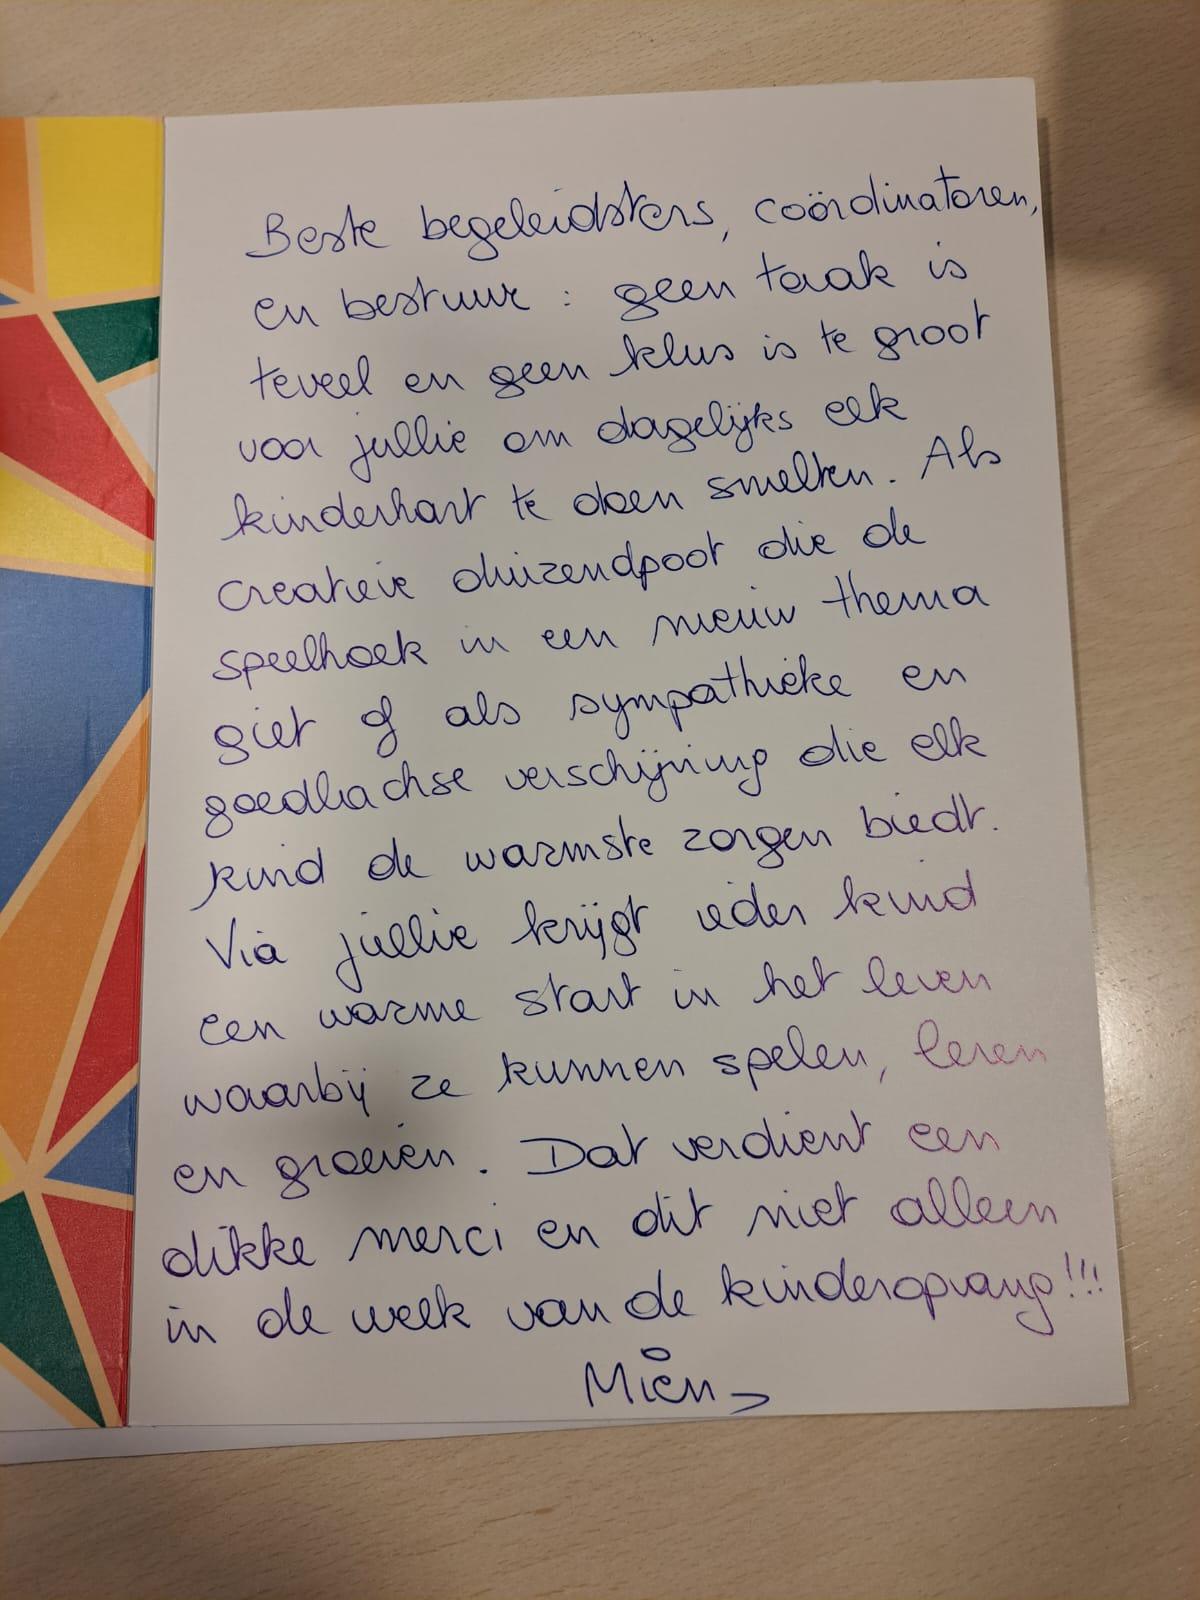 Beste begeleidsters, coördinatoren,
en bestuur : geen taak is
teveel en geen klus is te groot
voor jullie om dagelijks elk
kinderhart te doen smelten. Als
creatieve duizendpoot die de
speelhoek in een nieuw thema
giet of als sympathieke en
goedlachse verschijning die elk
kind de warmste zorgen biedt.
Via jullie krijgt ieder kind
een warme start in het leven
waarbij ze kunnen spelen, leren
en groeien. Dat verdient een
dikke merci en dit niet alleen
in de week van de kinderopvang!!!
Mien